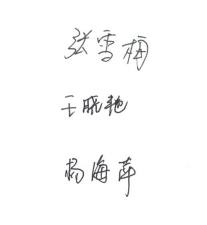 张雪梅
王晓艳
杨海萍